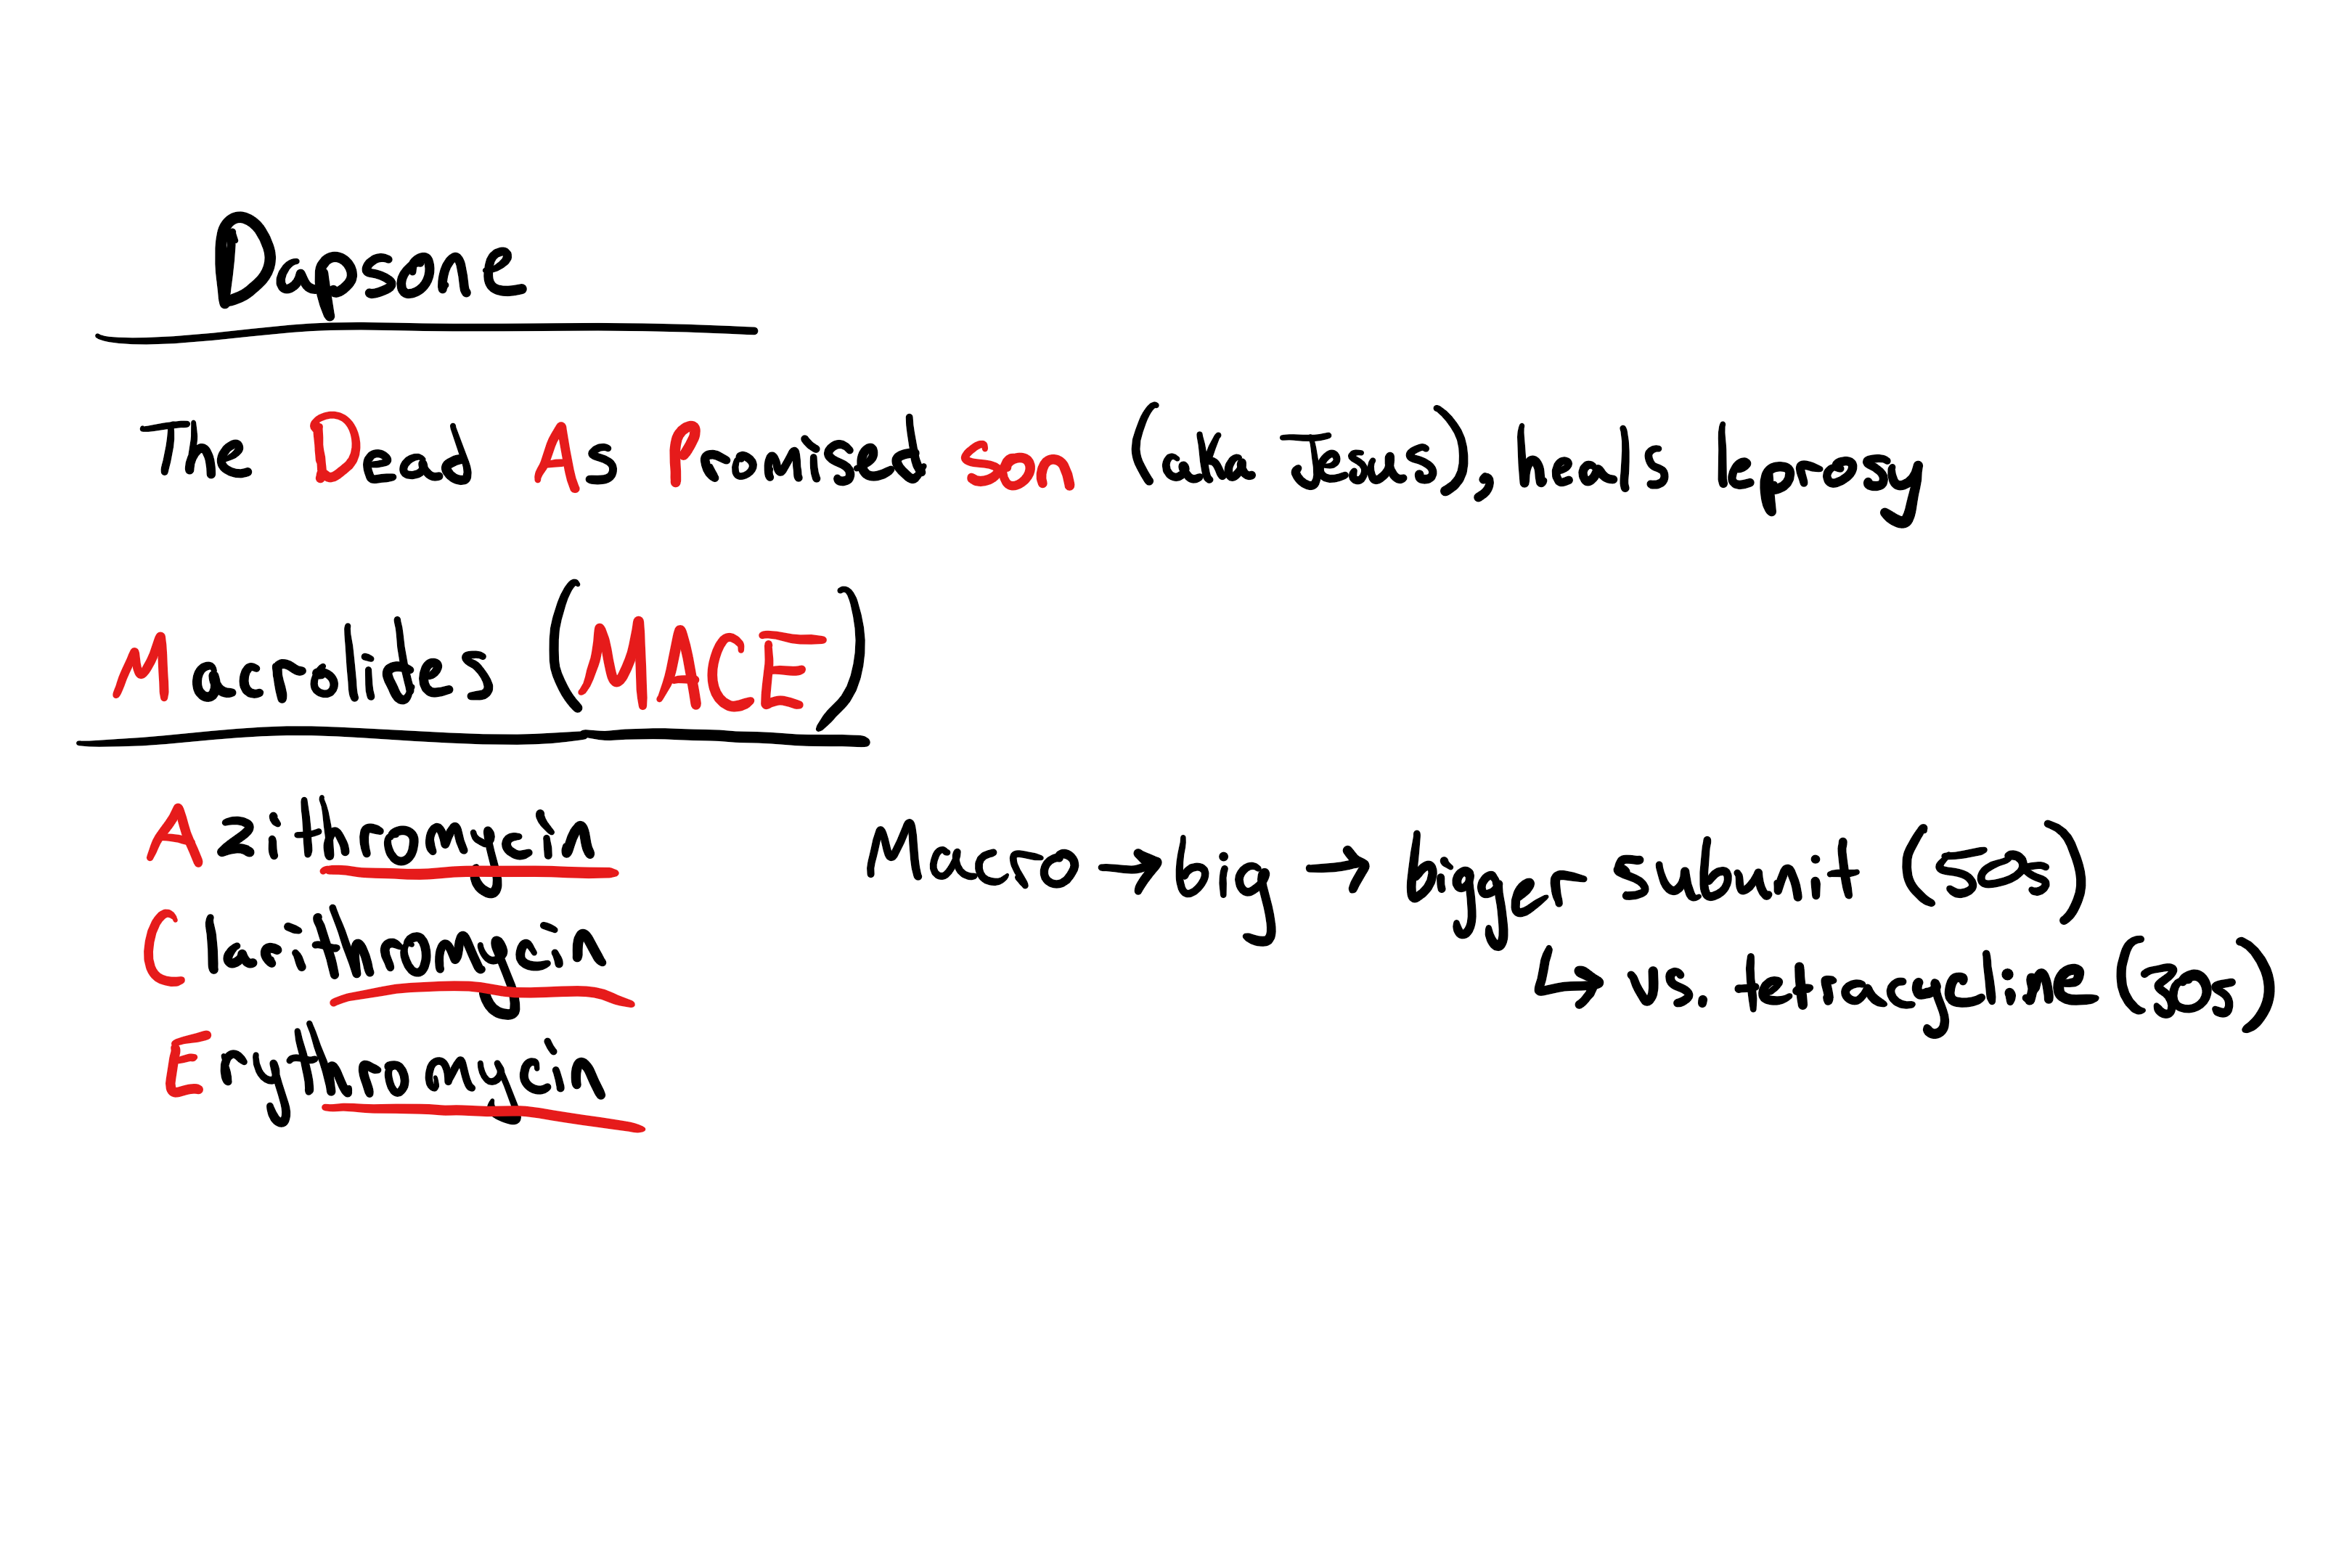 Dapsone
The Dead As Promised son (aka Jesus), heals leprosy
Macrolides (MACE)
Azithromycin
Clarithromycin
Erythromycin
Macro → big → bigger subunit (50s)
↳ vs. tetracycline (30s)